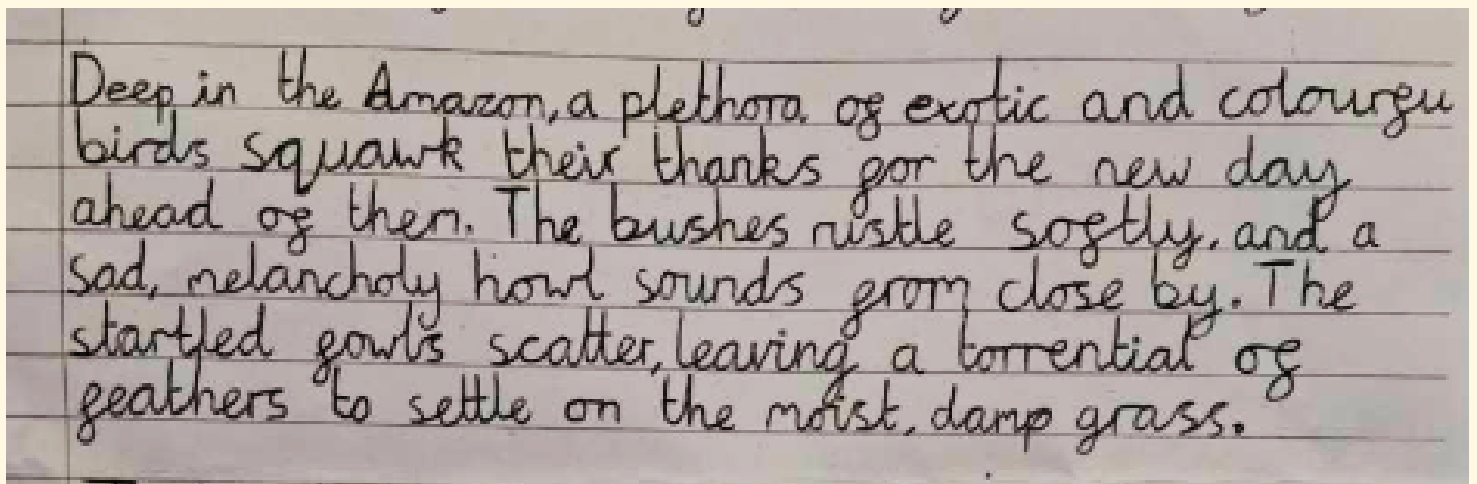 Deep in the Amazon, a plethora of exotic and colourfu
birds squawk their thanks for the new day
ahead of them. The bushes rustle softly, and a
sad, melancholy howl sounds from close by. The
startled fowls scatter, leaving a torrential of
feathers to settle on the moist, damp grass.